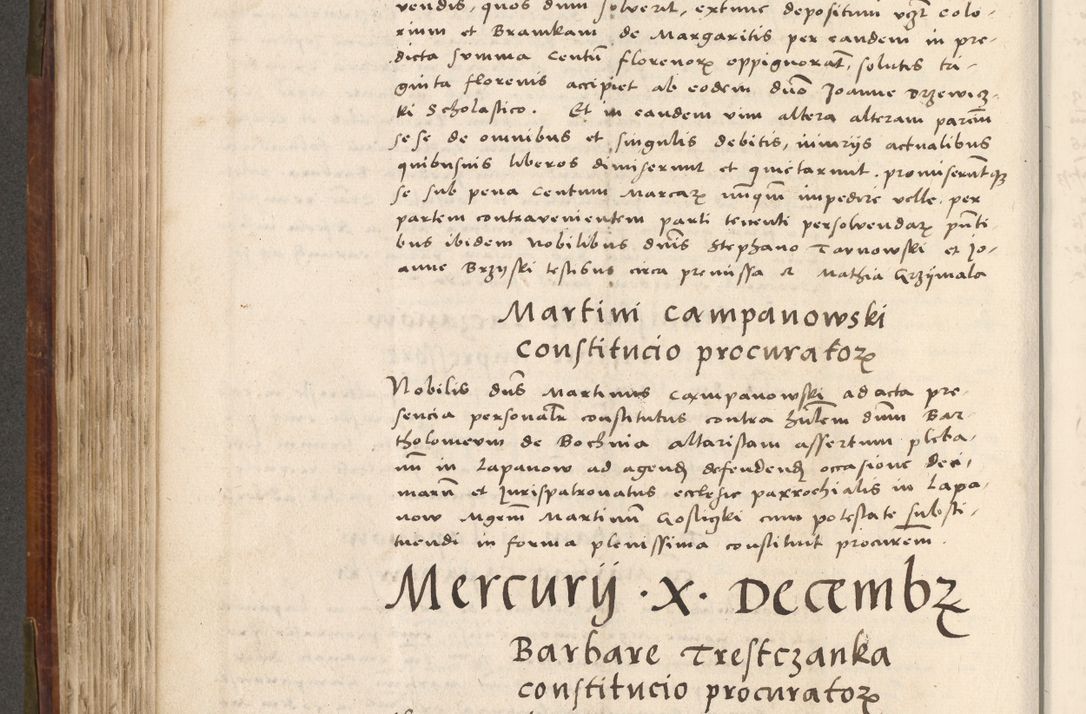 vendis, quos dum solverit, extunc depositum vigr̃ colo-
rium et Bramkam de Margaritis per eandem in pre-
dicta summa centũ florenorꝝ oppignorat̃, solutis tri-
ginta florenis accipiet ab eodem dño Joanne Drzewicz-
ki Scholastico. Et in eandem vim altera alteram partem̃
sese de omnibus et singulis debitis, iniurijs actualibus
quibusuis liberos dimiserunt et quietarunt. promiserũtqꝫ
se sub pena centum Marcarꝝ nũqm̃ impedire velle, per
partem contravenientem parti tenenti persolvendarꝝ pñti-
bus ibidem Nobilibus dñis Stephano Tarnowski et Jo-
anne Brzyski testibus circa premissa et Mathia Grzijmala
Martini Campanowski
constitucio procuratorꝝ
Nobilis dñs Martinus Campanowski ad acta pre-
sencia personalr̃ constitutus contra hũlem dñm Bar-
tholomeum de Bochnia altaristam assertum pleba-
nũ in Lapanow ad agend̃ defendend̃ occasione deci-
marũ et Jurispatronatus ecclesie parrochialis in Lapa-
now Mgrm̃ Martinũ Gosliczki cum potestate substi-
tuendi in forma plenissima constituit procurem̃.
Mercurij · X · Decembꝝ
Barbare Trestczanka
constitucio procuratorꝝ